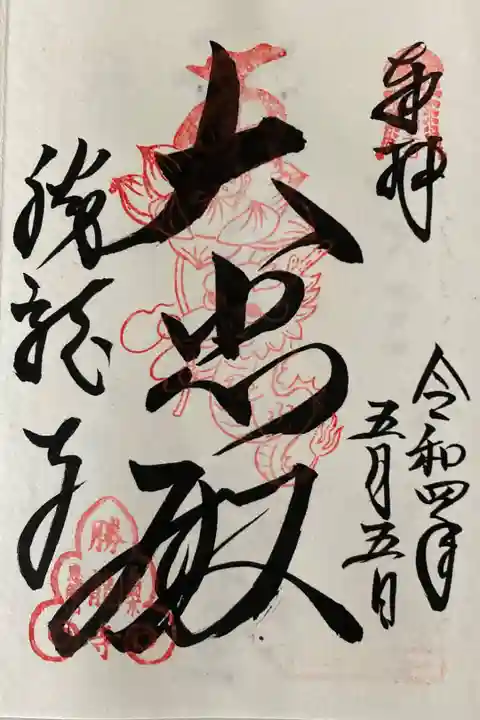 奉拝
令和四年
五月五日
大悲殿
勝龍寺
勝
龍
寺